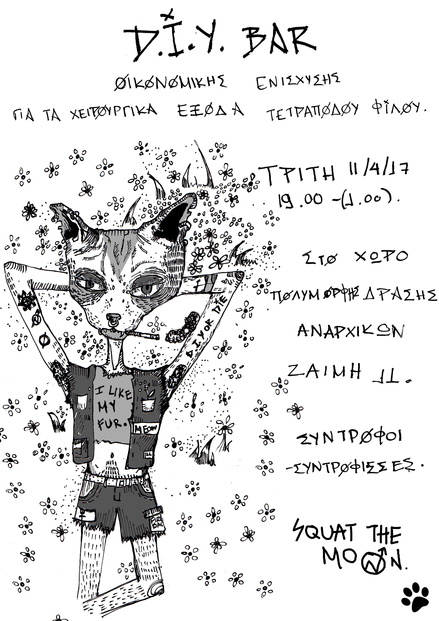 D.I.Y. BAR
ΟΙΚΟΝΟΜΙΚΗΣ ΕΝΙΣΧΥΣΗΣ
ΓΙΑ ΤΑ ΧΕΙΡΟΥΡΓΙΚΑ ΕΞΟΔΑ ΤΕΤΡΑΠΟΔΟΥ ΦΙΛΟΥ.
ΤΡΙΤΗ 11/4/17
19.00 -(1.00).
ΣΤΟ ΧΩΡΟ
ΠΟΛΥΜΟΡΦΗΣ ΔΡΑΣΗΣ
ΑΝΑΡΧΙΚΩΝ
ΖΑΙΜΗ 11.
ΣΥΝΤΡΟΦΟΙ
-ΣΥΝΤΡΟΦΙΣΣΕΣ.
SQUAT THE
MOON.
D.I.Y OR DIE
I LIKE
MY
FUR.
MEOW